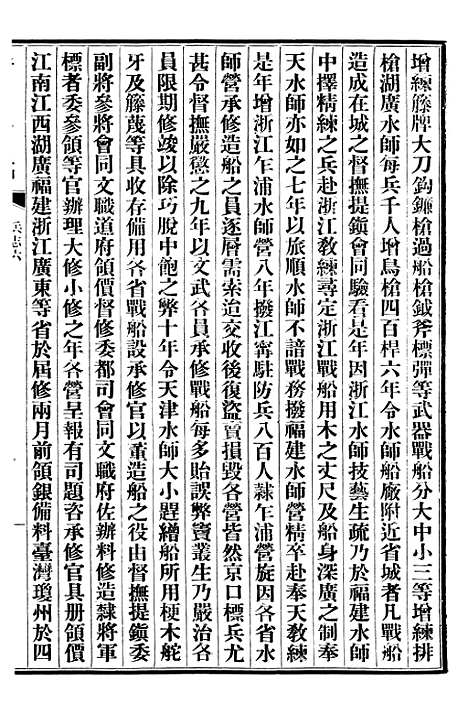 增練籐牌大刀鈎鐮槍過船槍鉞斧標彈等武器戰船分大中小三等增練排
槍湖廣水師每兵千人增鳥槍四百桿六年令水師船廠附近省城者凡戰船
造成在城之督撫提鎭會同驗看是年因浙江水師技藝生疏乃於福建水師
中擇精練之兵赴浙江敎練尋定浙江戰船用木之丈尺及船身深廣之制奉
天水師亦如之七年以旅順水師不諳戰務撥福建水師營精卒赴奉天敎練
是年增浙江乍浦水師營八年撥江甯駐防兵八百人隸乍浦水師營旋因各省水
師營承修造船之員逐層需索迨交收後復盜賣損毀各營皆然京口標兵尤
甚令督撫嚴懲之九年以文武各員承修戰船每多貽誤弊竇叢生乃嚴治各
員限期修竣以除巧脫中飽之弊十年令天津水師大小趕繒船所用梗木舵
牙及籐蔑等具收存備用各省戰船設承修官以董造船之役由督撫提鎭委
副將參將會同文職道府領價督修委都司會同文職府佐辦料修造隸將軍
標者委參領等官辦理大修小修之年各營呈報有司題咨承修官具册領價
江南江西湖廣福建浙江廣東等省於屆修兩月前領銀備料臺灣瓊州於四
兵志六